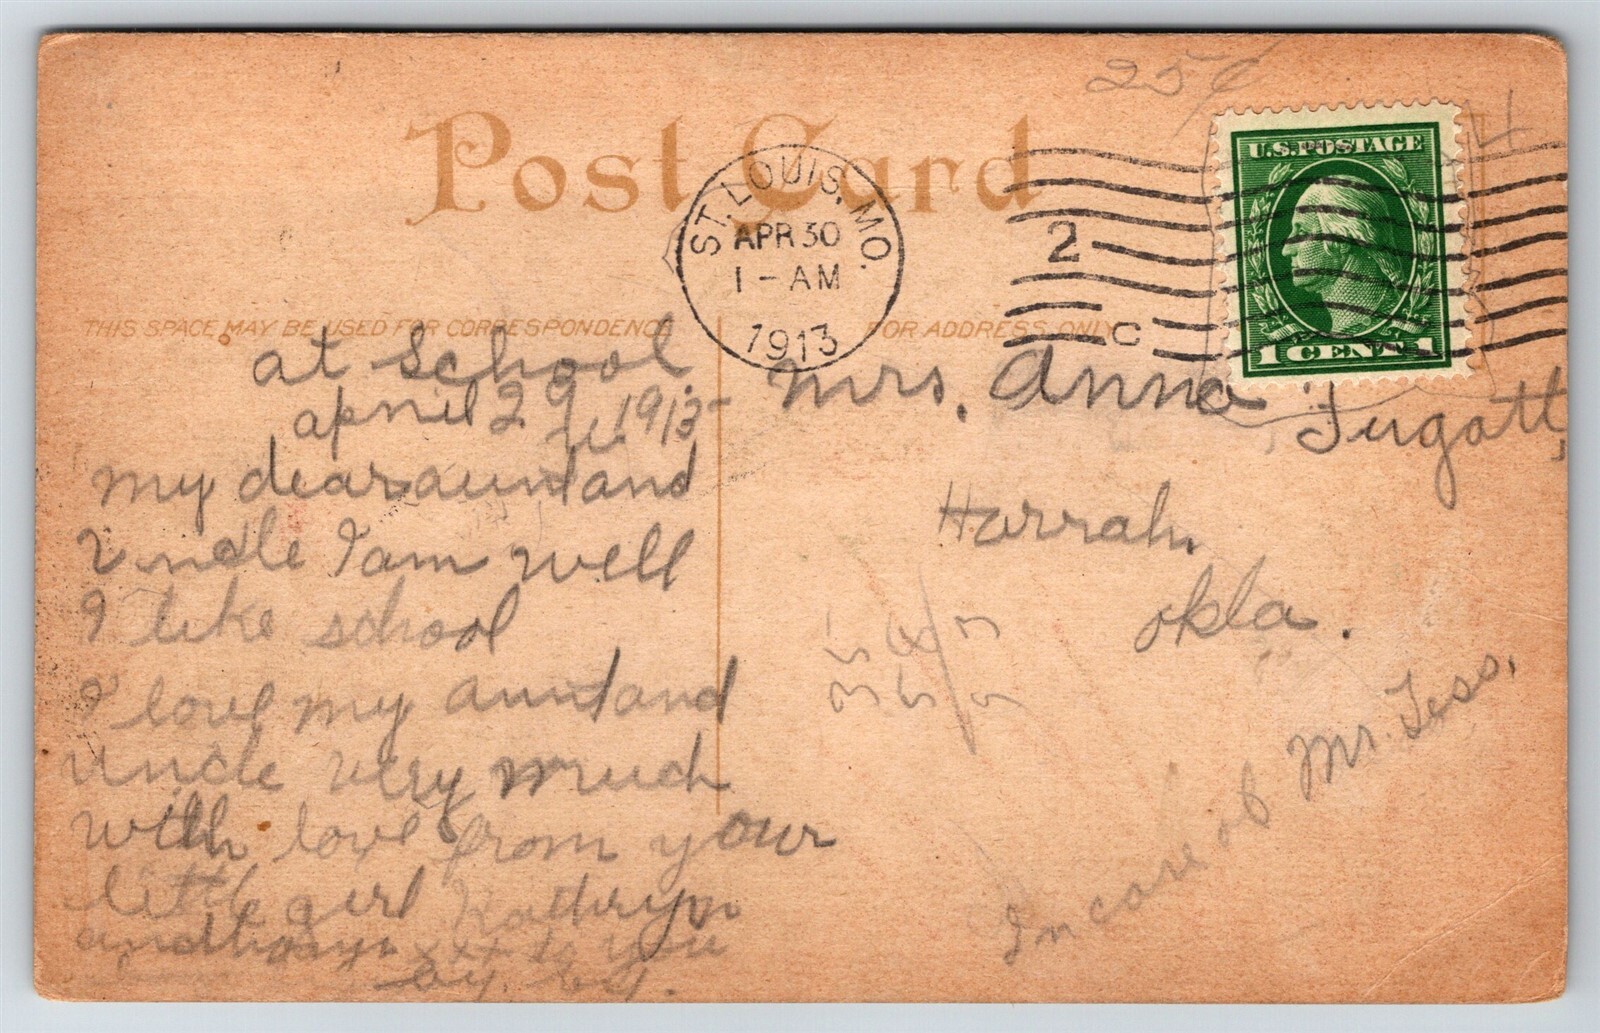 25¢
Post Card
ST. LOUIS, MO.
APR 30
1 - AM
1913
2
C
U.S. POSTAGE
1 CENT 1
THIS SPACE MAY BE USED FOR CORRESPONDENCE
FOR ADDRESS ONLY
at school
april 29, 1913
my dear aunt and
Uncle I am well
I like school
I love my aunt and
uncle very much
with love from your
little girl Kathryn
xxx to you
by by.
Mrs. Anna Fugatt,
Harrah.
okla.
In care of Mr. Tess.